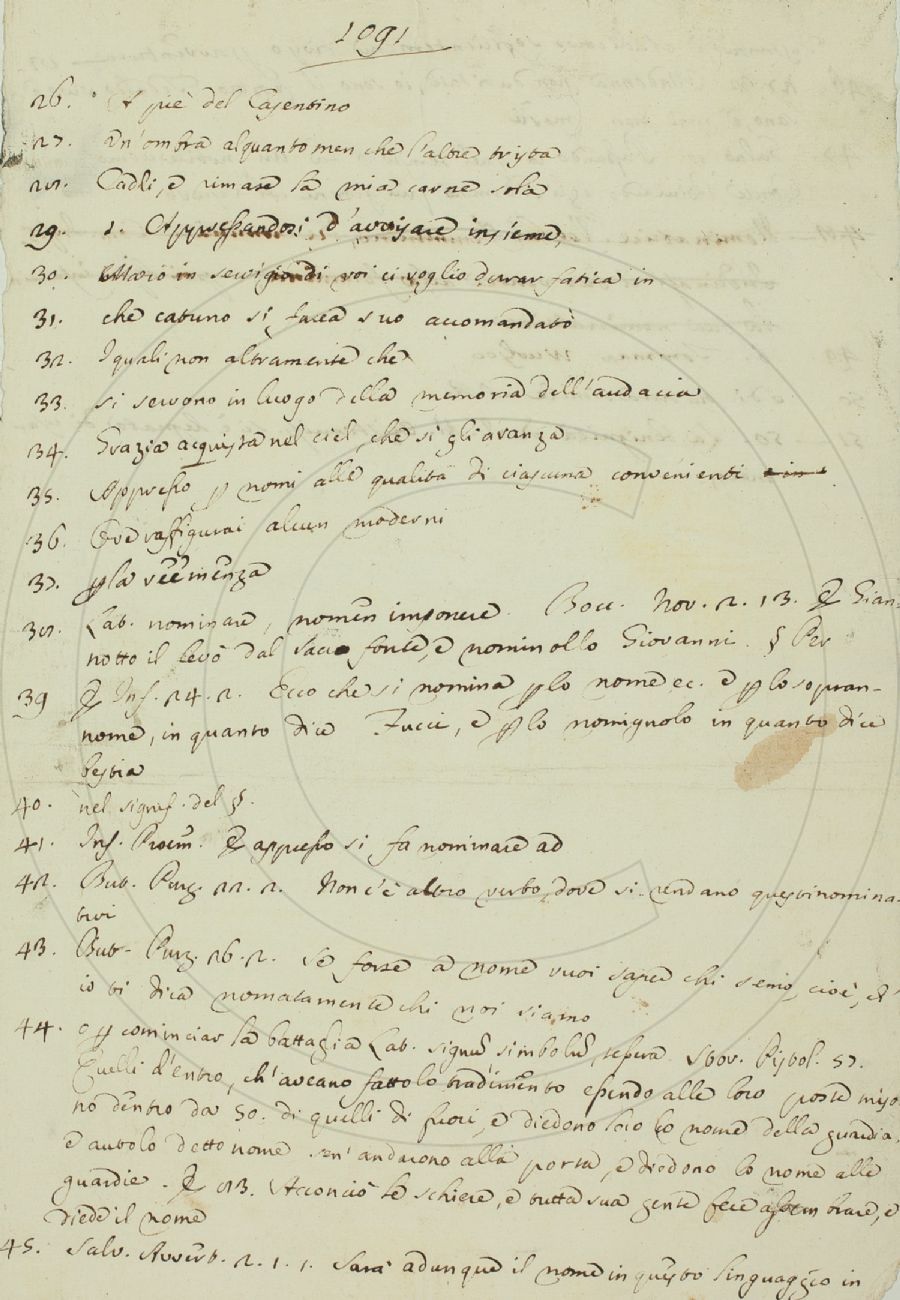 1091
26. A piè del Casentino
27. Un'ombra alquanto men che l'altre trista
28. Caddi, e rimase la mia carne sola
29. 1. Appressandosi d'avvisare insieme
30. in servigio di voi ci voglio durar fatica in
31. che catuno si facea suo accomandato
32. I quali non altramente che
33. si servono in luogo della memoria dell'audacia
34. Grazia acquista nel ciel, che sì gli avanza
35. Appresso p nomi alle qualità di ciascuna convenienti
36. Ove raffigurai alcun moderni
37. p la veemenza
38. Lab. nominare, nomen imponere. Bocc. Nov. 2. 13. E Gian-
notto il levò dal sacro fonte, e nominollo Giovanni. § Per
39 E Inf. 24. 2. Ecco che si nomina p lo nome ec. e p lo sopran-
nome, in quanto dice Fucci, e p lo nomignolo in quanto dice
bestia
40. nel signif. del §.
41. Inf. Proem. E appresso si fa nominare ad
42. But. Purg. 22. 2. Non c'è altro verbo, dove si rendano questi nomina-
tivi
43. But. Purg. 26. 2. Se forse a nome vuoi saper chi semo, cioè, ch'
io ti dica nomatamente chi noi siamo
44. o p cominciar la battaglia Lab. signum symbolum, tessera. Stor. Pistol. 57.
Quelli d'entro, ch'aveano fatto lo tradimento essendo alle loro poste miso-
no dentro da 50. di quelli di fuori, e diedono loro lo nome della guardia,
e avuto detto nome sen' andarono alla porta, e diedono lo nome alle
guardie. E 83. Acconciò le schiere, e tutta sua gente fece assembrare, e
diede il nome
45. Salv. Avvert. 2. 1. 1. Sarà adunque il nome in questo linguaggio in